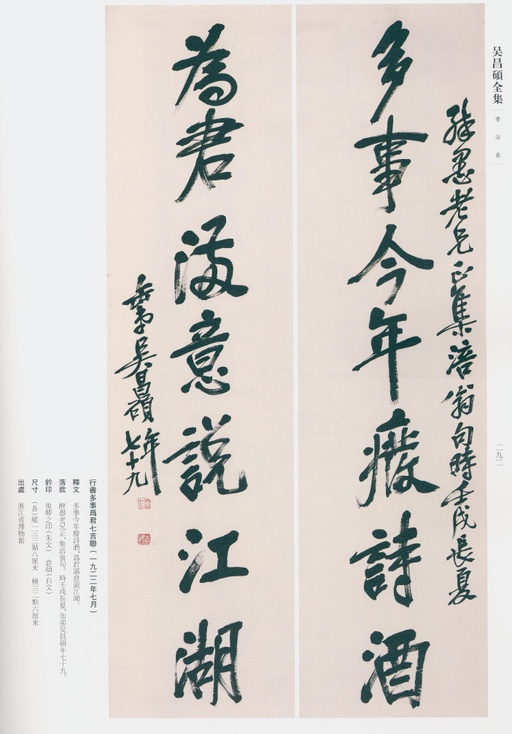 吴昌碩全集
書法卷
二九二
醉愚老兄正集涪翁句時壬戌長夏
多事今年廢詩酒
為君滿意說江湖
缶弟吳昌碩年七十九
行書多事爲君七言聯（一九二二年七月）
釋文 多事今年廢詩酒，爲君滿意說江湖。
落款 醉愚老兄正，集涪翁句。時壬戌長夏，缶弟吳昌碩年七十九。
鈐印 俊卿之印（朱文） 倉碩（白文）
尺寸 （各）縱一三三點八厘米 橫三二點六厘米
出處 浙江省博物館